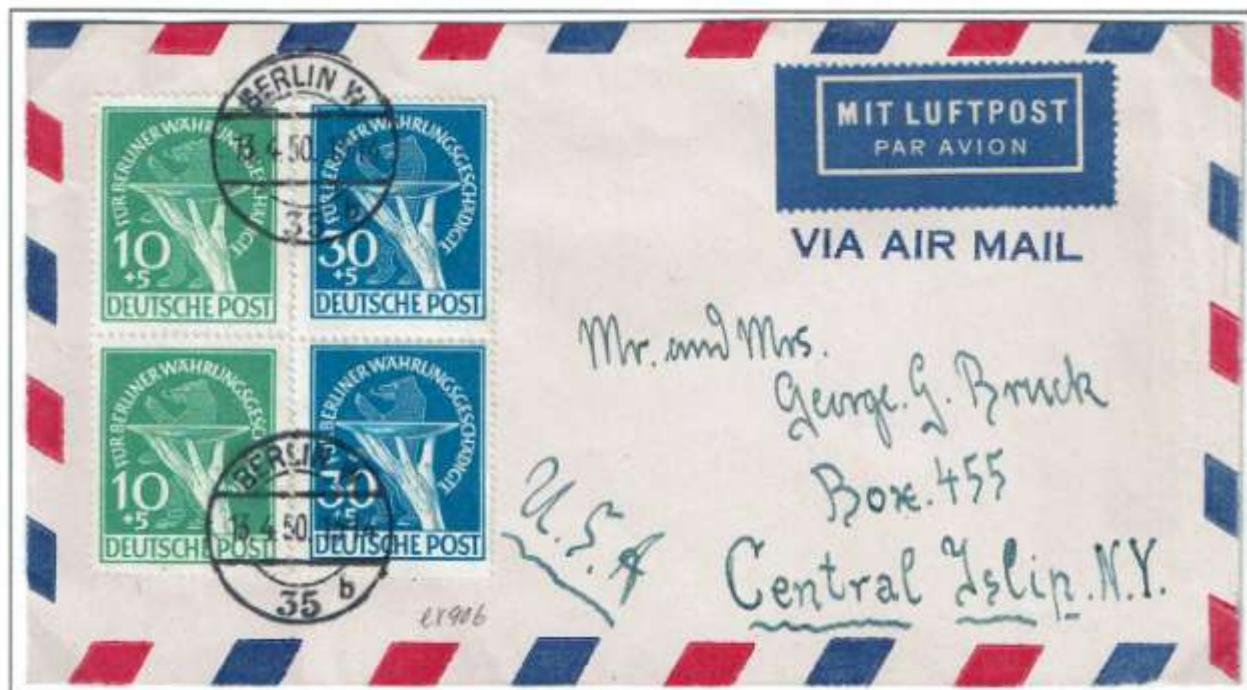 BERLIN W
13.4.50.
35 b
FÜR BERLINER WÄHRUNGSGESCHÄDIGTE
10
+5
DEUTSCHE POST
FÜR BERLINER WÄHRUNGSGESCHÄDIGTE
30
+5
DEUTSCHE POST
FÜR BERLINER WÄHRUNGSGESCHÄDIGTE
10
+5
DEUTSCHE POST
FÜR BERLINER WÄHRUNGSGESCHÄDIGTE
30
+5
DEUTSCHE POST
BERLIN W
13.4.50.
35 b
MIT LUFTPOST
PAR AVION
VIA AIR MAIL
Mr. and Mrs.
George. G. Bruck
Box. 455
U.S.A
Central Islip. N.Y.